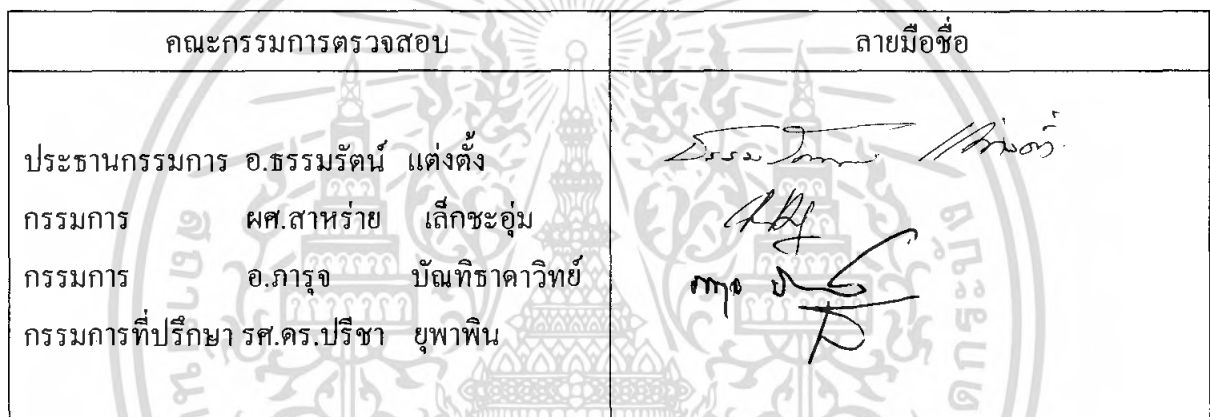 คณะกรรมการตรวจสอบ ลายมือชื่อ
ประธานกรรมการ อ.ธรรมรัตน์ แต่งตั้ง
กรรมการ ผศ.สาหร่าย เล็กชะอุ่ม
กรรมการ อ.ภารุจ บัณฑิธาดาวิทย์
กรรมการที่ปรึกษา รศ.ดร.ปรีชา ยุพาพิน